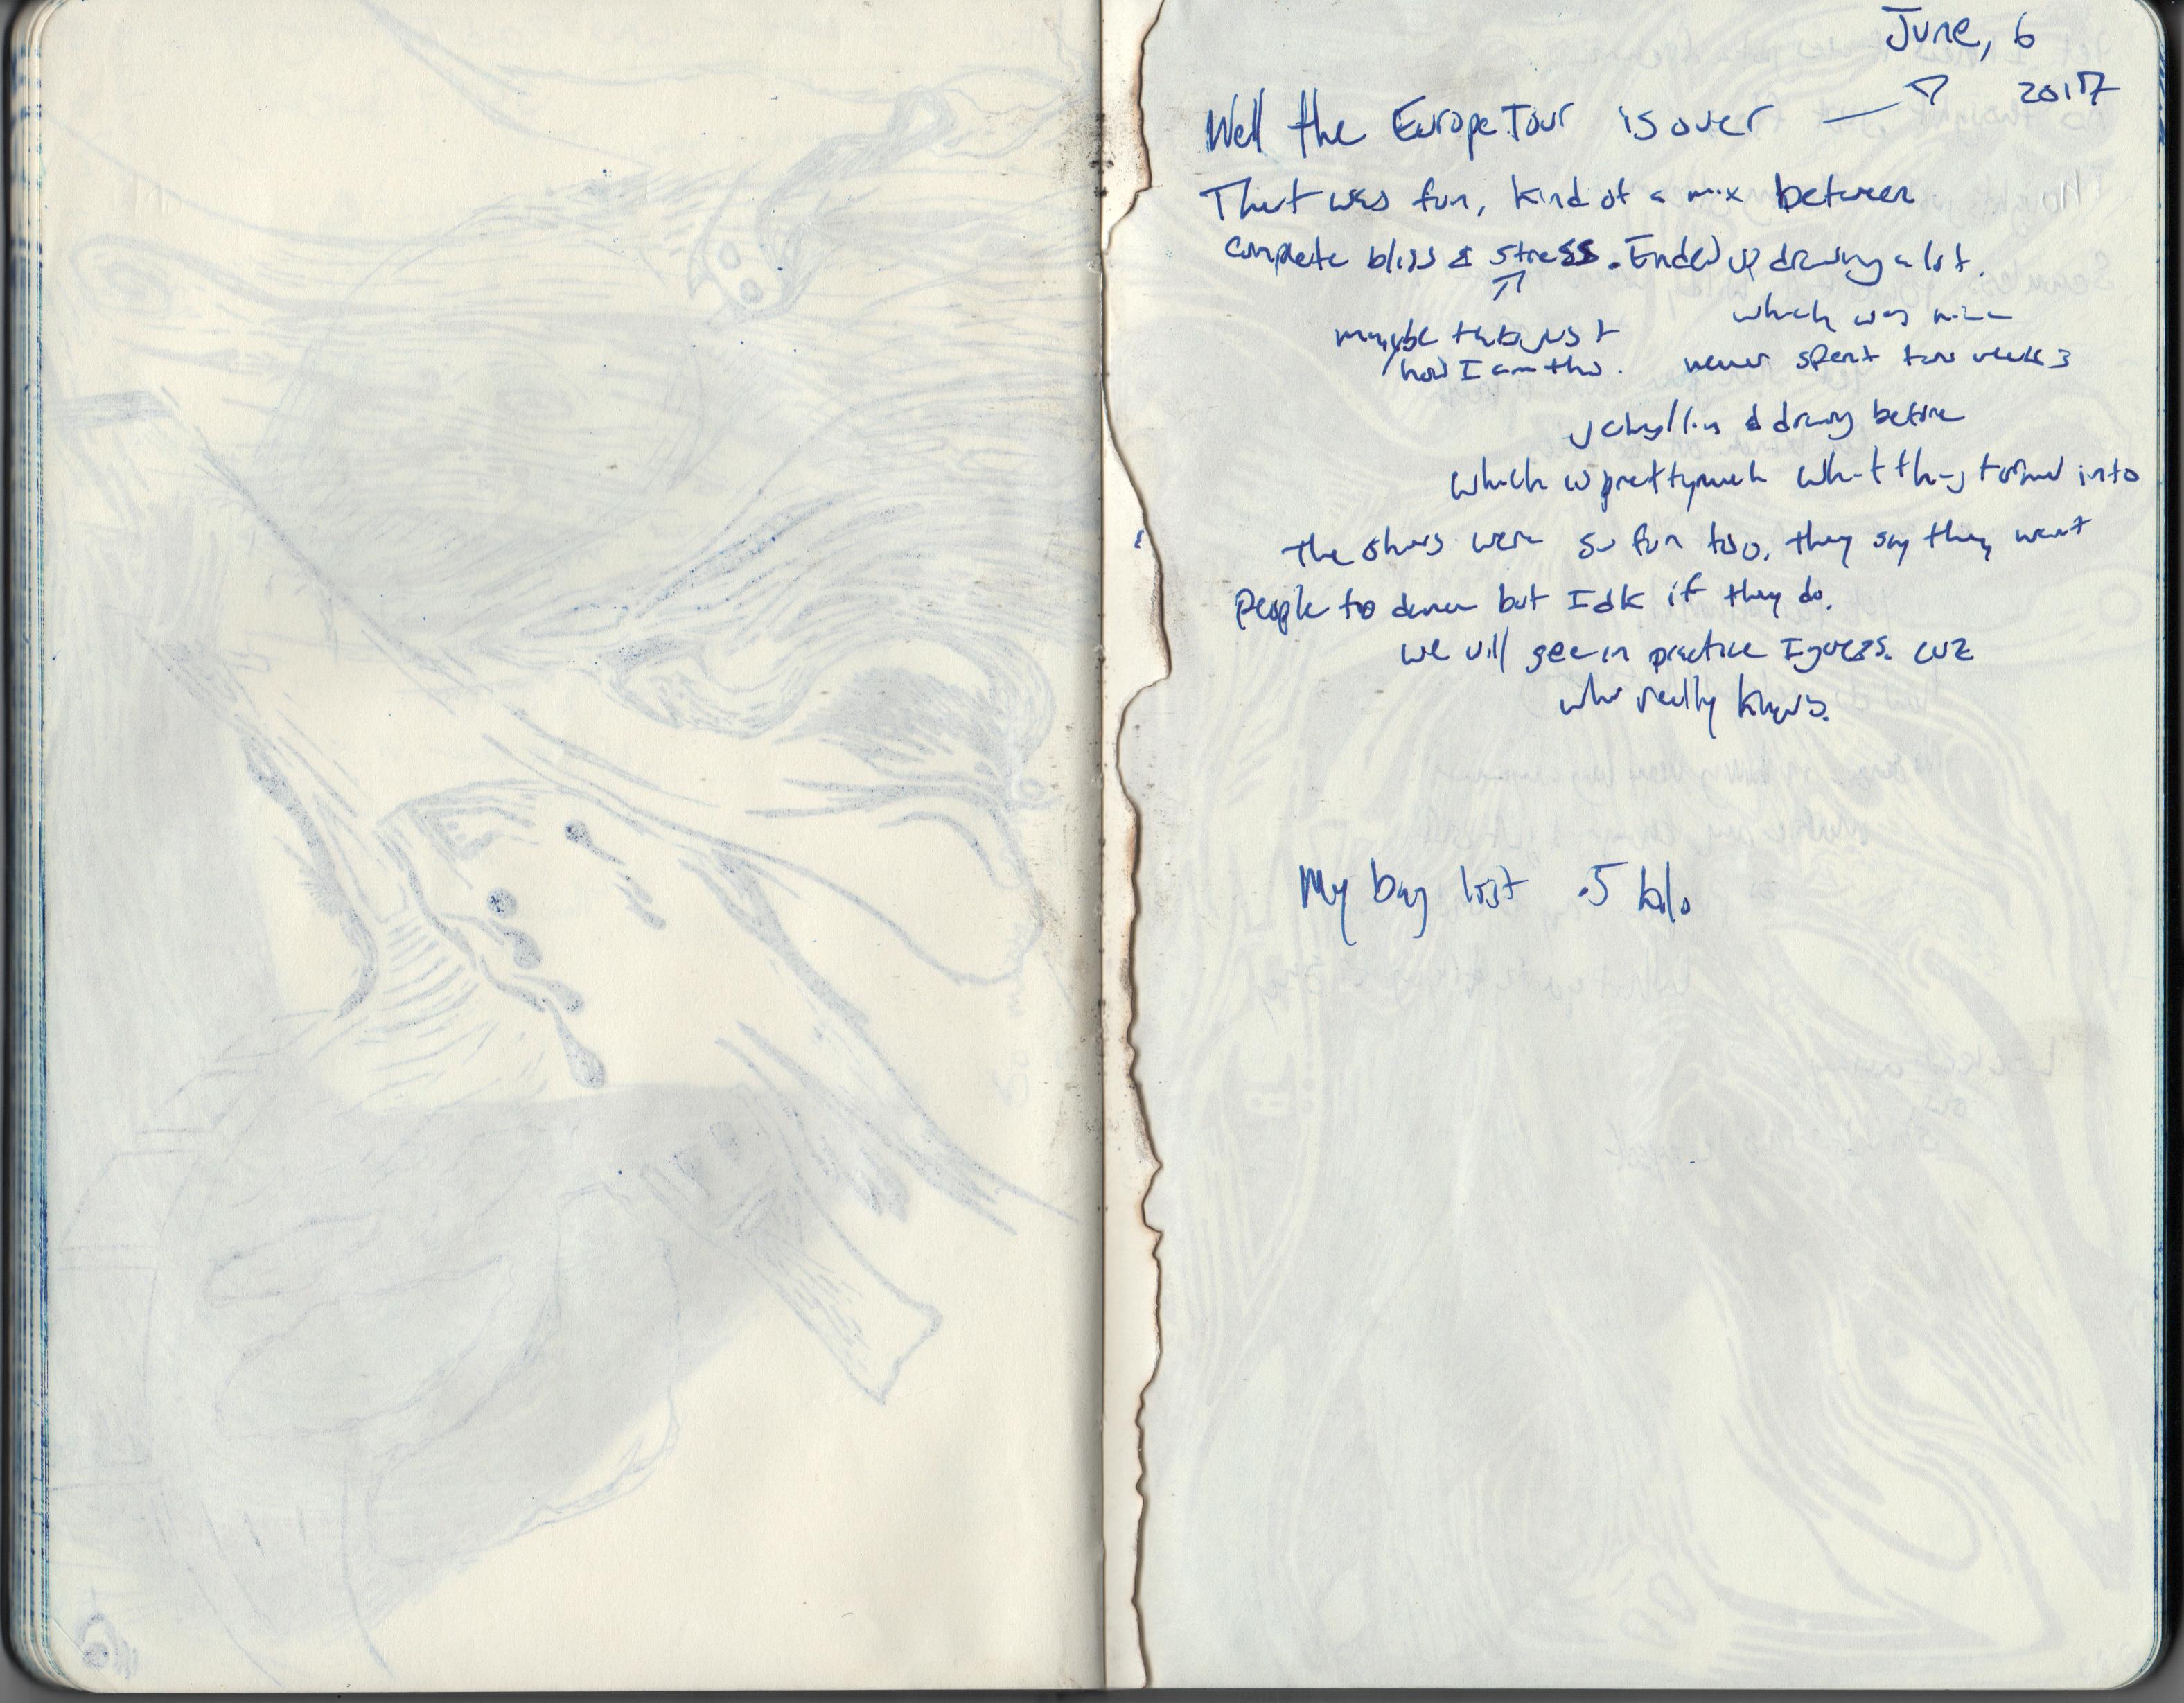 June, 6
2017
Well the Europe Tour is over
That was fun, kind of a mix between
complete bliss & stress. Ended up drawing a lot.
which was nice
maybe thats just
how I am tho.
never spent two weeks
& drawing before
which is pretty much what this turned into
The shows were so fun too. they say they want
people to dance but Idk if they do.
we will see in practice I guess. cuz
who really knows.
My bag lost .5 kilo